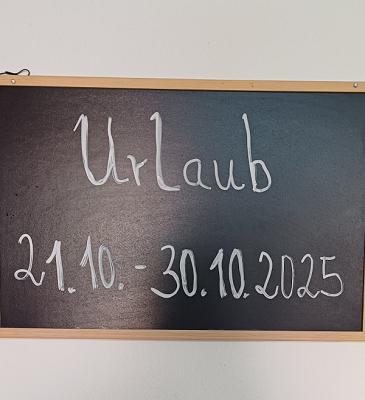 Urlaub
21.10.-30.10.2025